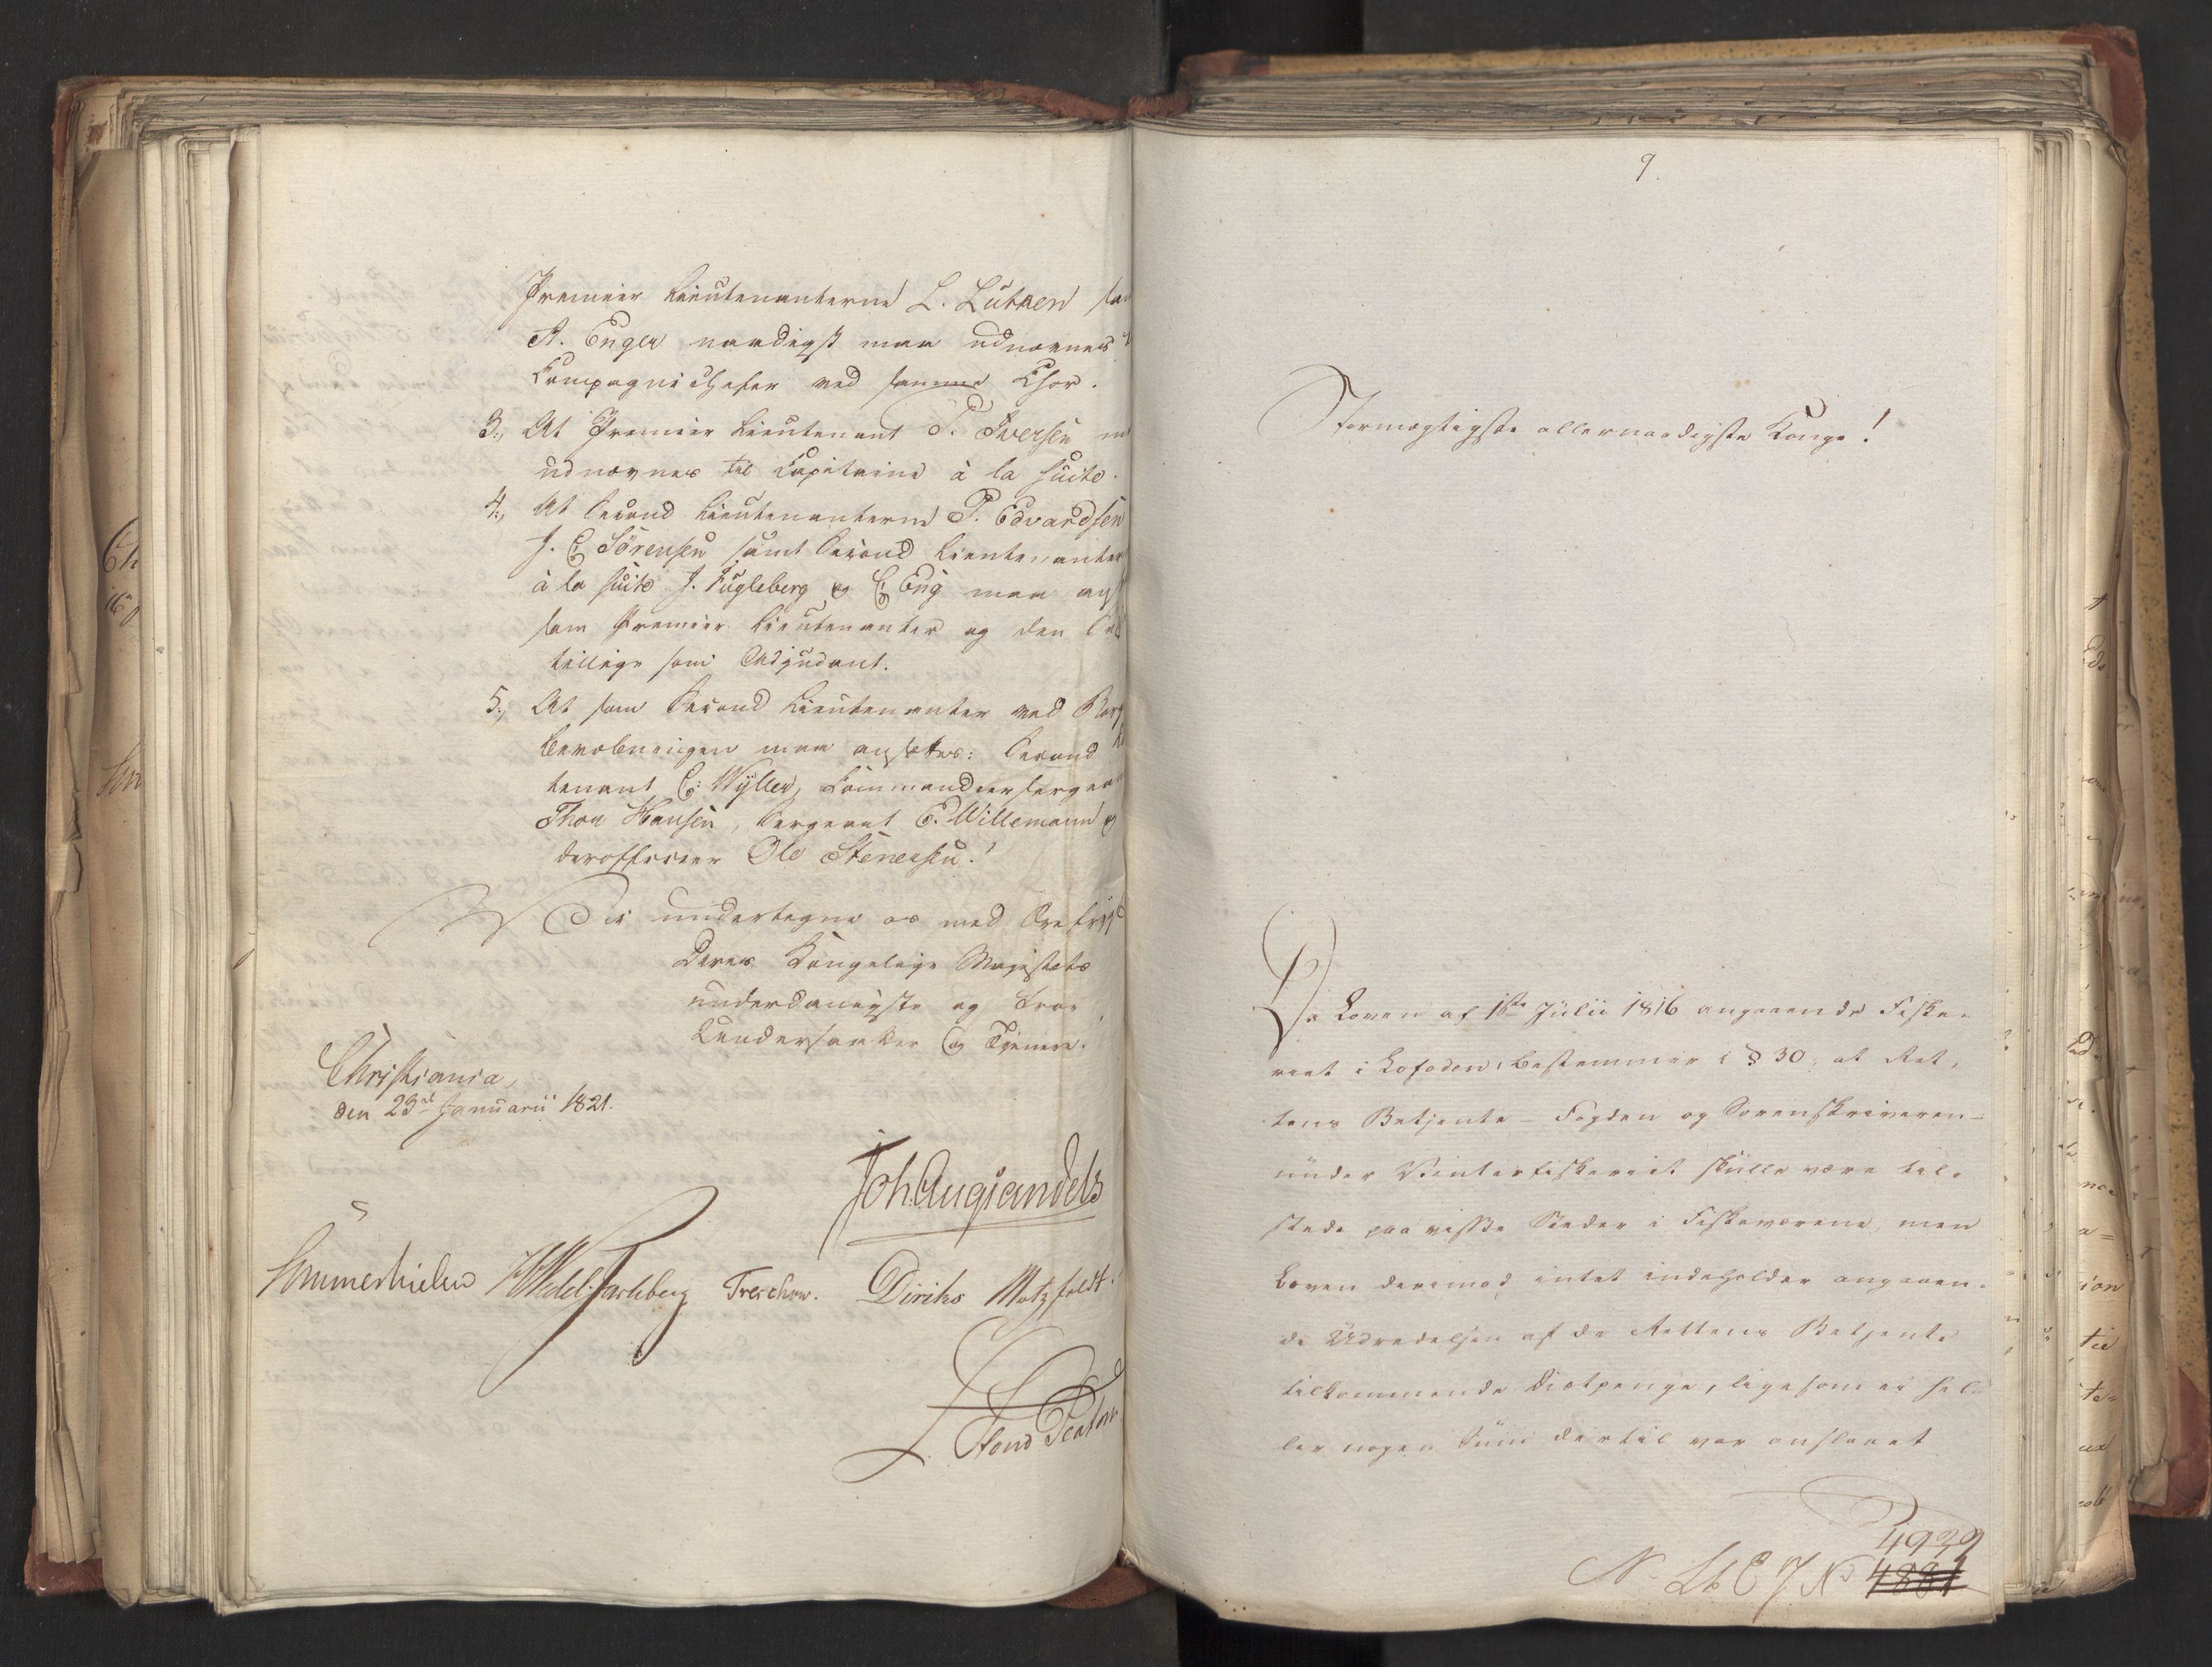 Premier Lieutenanterne L. Lutken sa
A. Enger naadigst maa udnævnes
Compagnichefer ved samme Chor.
3., At Premier Lieutenant P. Iversen m
udnævnes til Capitaine à la suite.
4., At Second Lieutenanterne P. Edvardsen
J. C. Sörensen samt Second Lieutenanter
à la suite J. Fugleberg og C. Eng maa
som Premier Lieutenanter og den
tillige som Adjudant.
5., At som Second Lieutenanter ved Borg
bevæbningen maa ansættes: Second
tenant C. Wyller, Commandeersergean
Thon Hansen, Sergeant E. Willemann
derofficier Ole Stenersen!
Vi undertegne os med
Deres Kongelige Majestæts
underdanigste og troe
Undersaatter og Tjenere.
Christiania,
den 23d Januarii 1821.
Joh. Aug. Sandels
Sommerhielm Wedel-Jarlsberg Treschow. Diriks Motzfeldt.
9.
Stormægtigste allernaadigste Konge!
Da Loven af 1ste Julii 1816 angaaende Fiske-
riet i Lofoden bestemmer i § 30, at Ret-
tens Betjente – Fogden og Sorenskriveren –
under Vinterfiskeriet skulle være til-
stede paa visse Steder i Fiskeværene, men
Loven derimod intet indeholder angaaen-
de Udredelsen af de Rettens Betjente
tilkommende Diætpenge, ligesom ei hel-
ler nogen Sum dertil var anslaaet
4939
4881